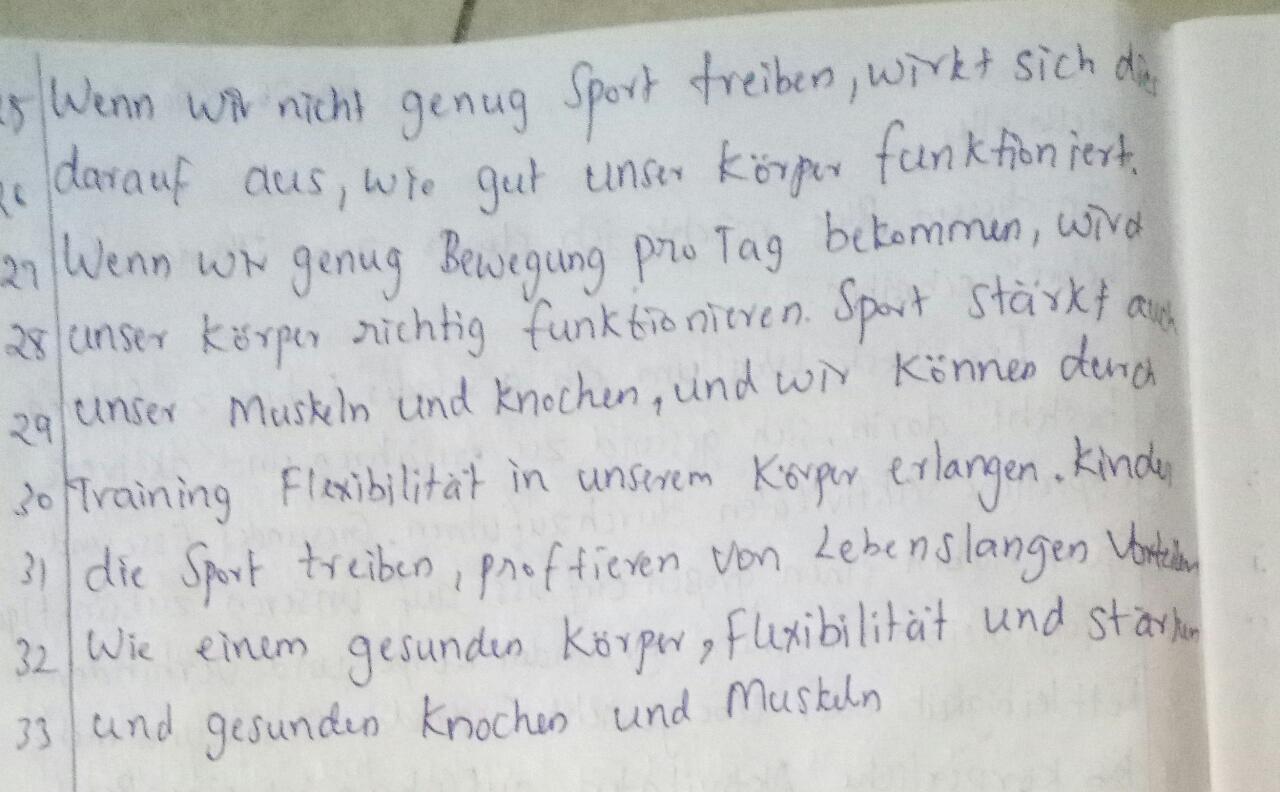 25 Wenn wir nicht genug Sport treiben, wirkt sich dies
26 darauf aus, wie gut unser Körper funktioniert.
27 Wenn wir genug Bewegung pro Tag bekommen, wird
28 unser Körper richtig funktionieren. Sport stärkt auch
29 unser Muskeln und Knochen, und wir können durch
30 Training Flexibilität in unserem Körper erlangen. Kinder
31 die Sport treiben, proftieren von Lebenslangen Vorteilen
32 Wie einem gesunden Körper, Flexibilität und starken
33 und gesunden Knochen und Muskeln